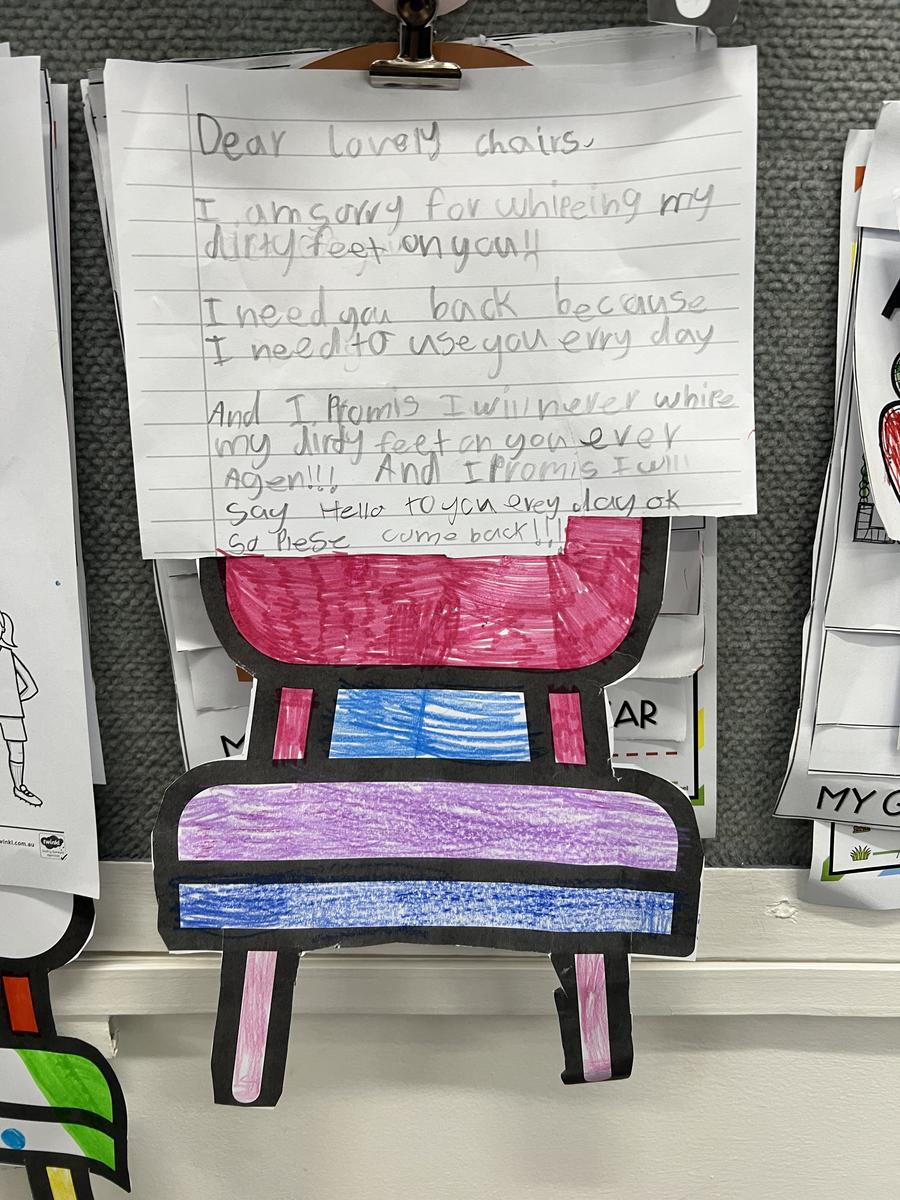 Dear lovely chairs.
I am sorry for whipeing my
dirty feet on you!!
I need you back because
I need to use you erry day
And I Promis I will never whipe
my dirdy feet on you ever
Agen!!! And I Promis I will
say Hello to you erey day ok
so Plese come back!!!
AR
MY G
twinkl.com.au
twinkl